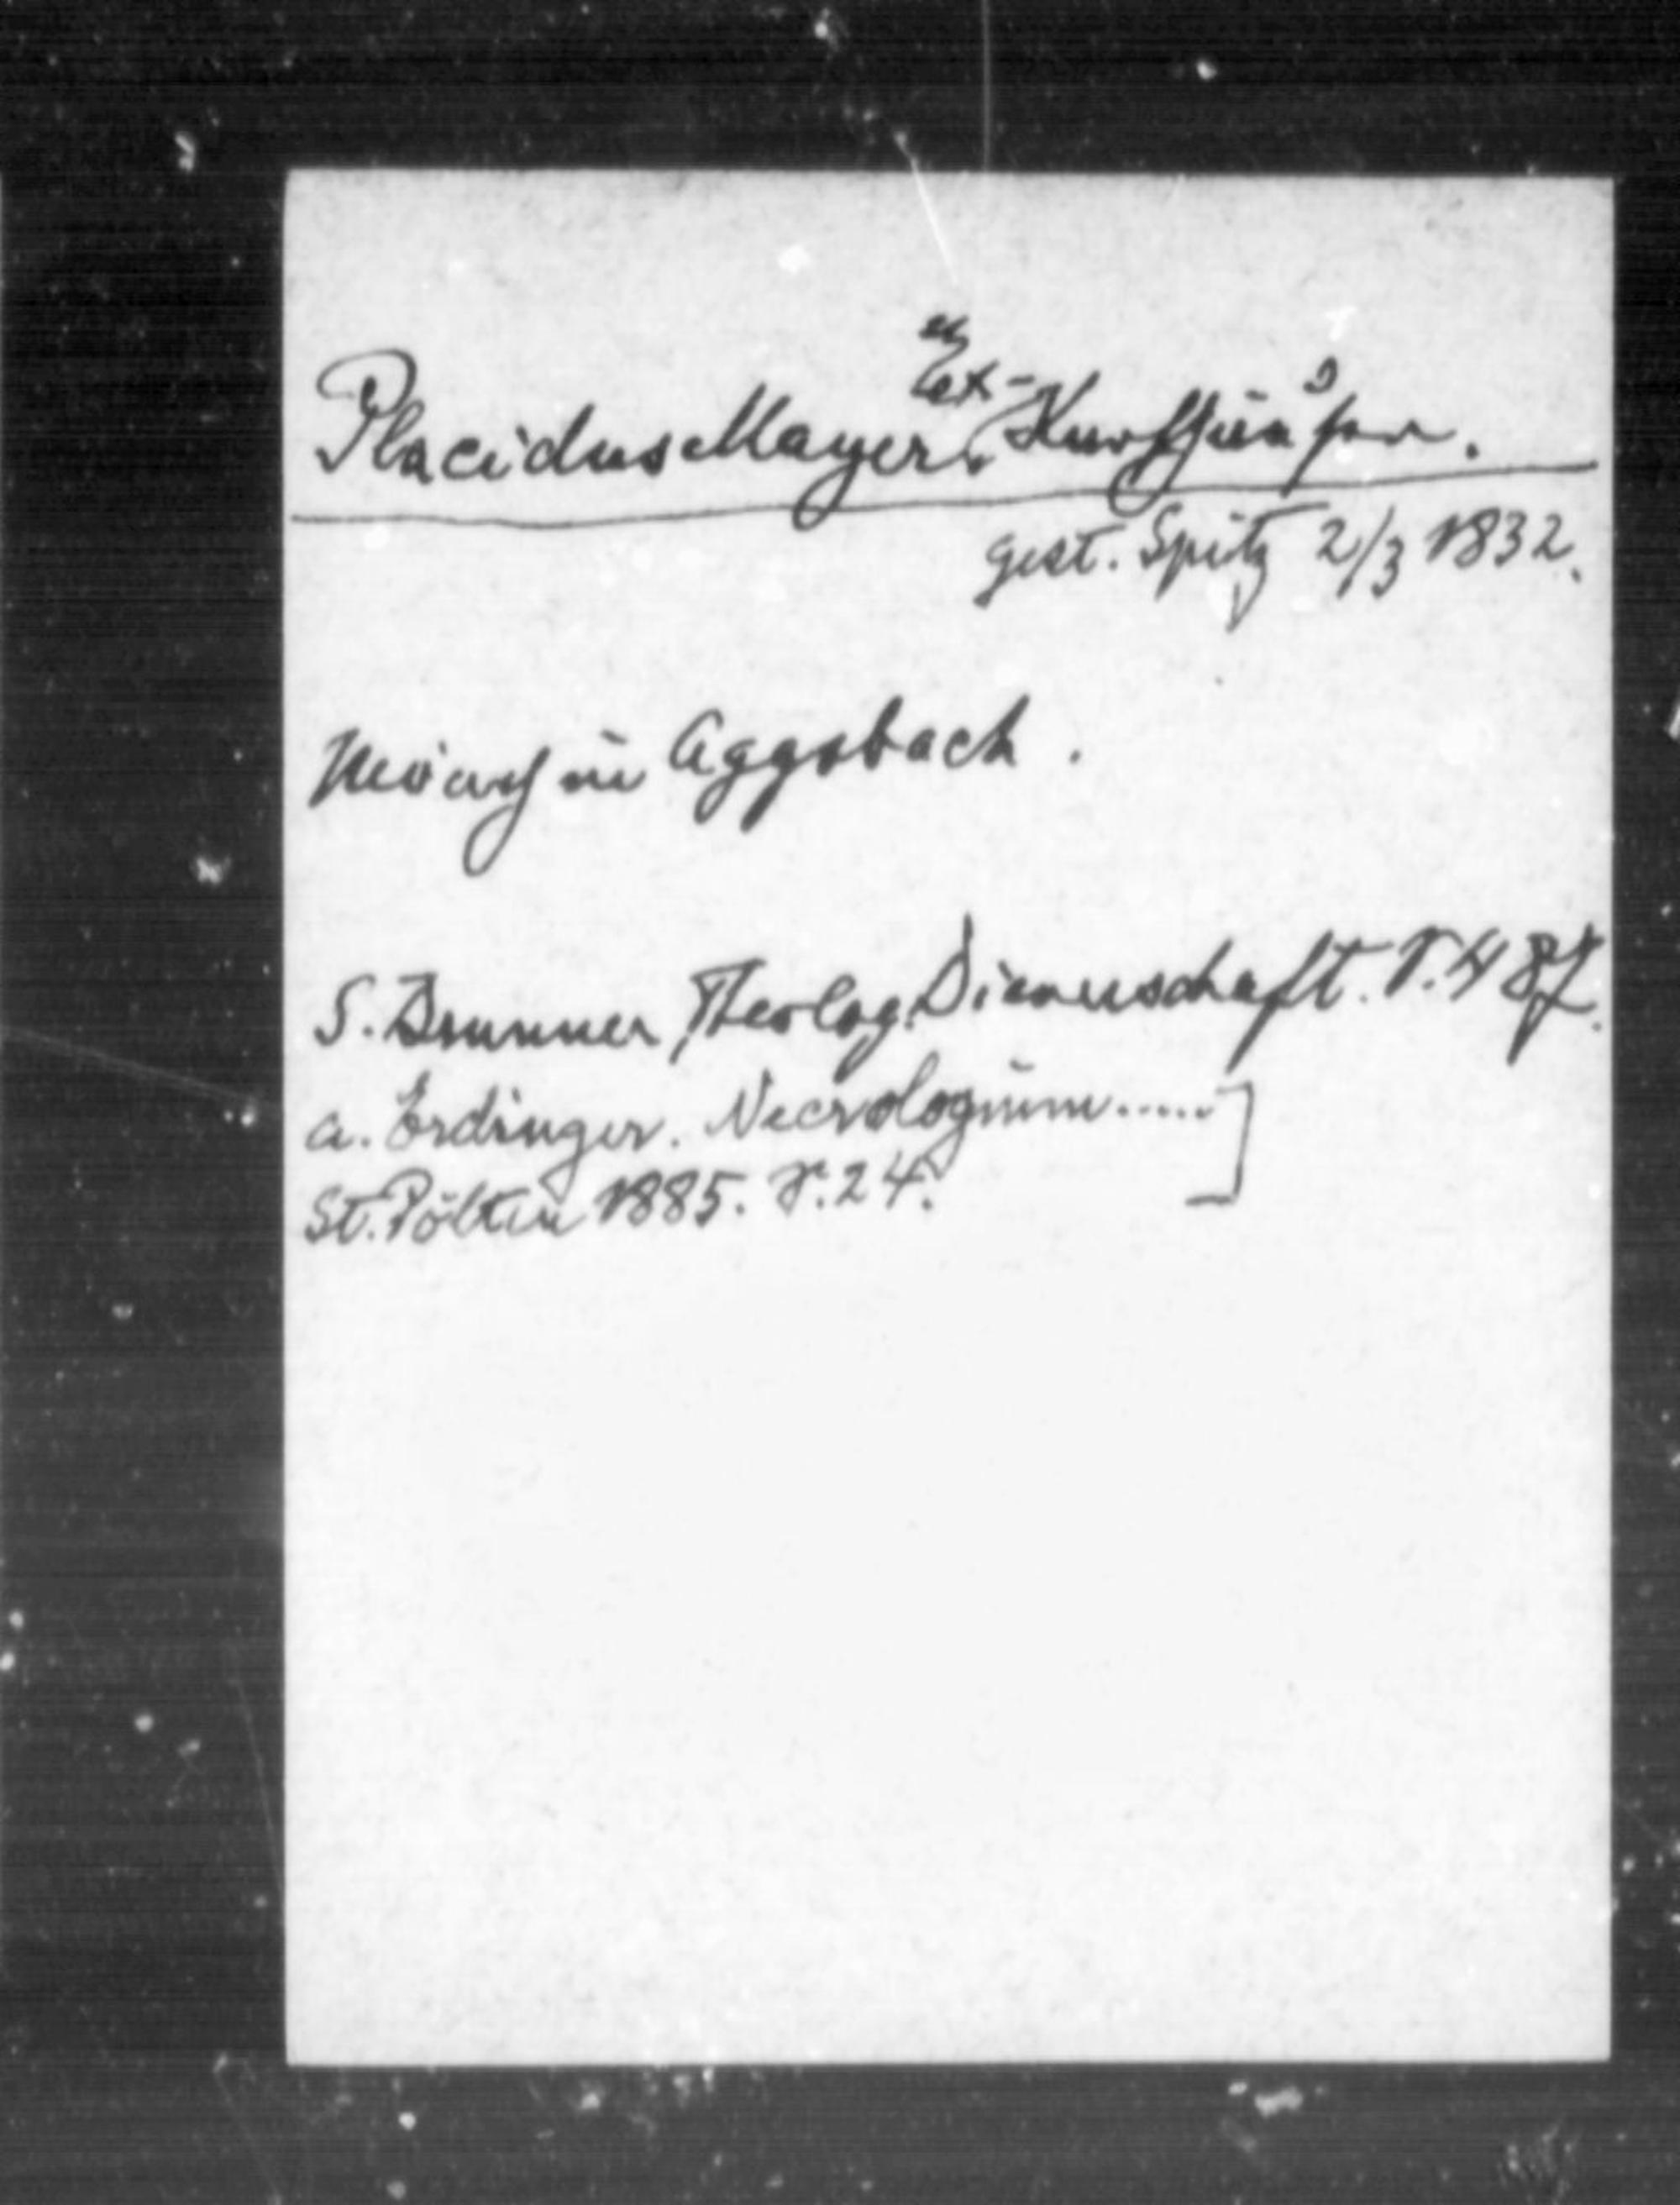 Placidus Mayer, Ex-Karthäuser.
gest. Spitz 2/3 1832.
Mönch in Aggsbach.
S. Brunner, Theolog. Dienerschaft. S. 487.
A. Erdinger. Necrologium.....]
St. Pölten 1885. S. 24.